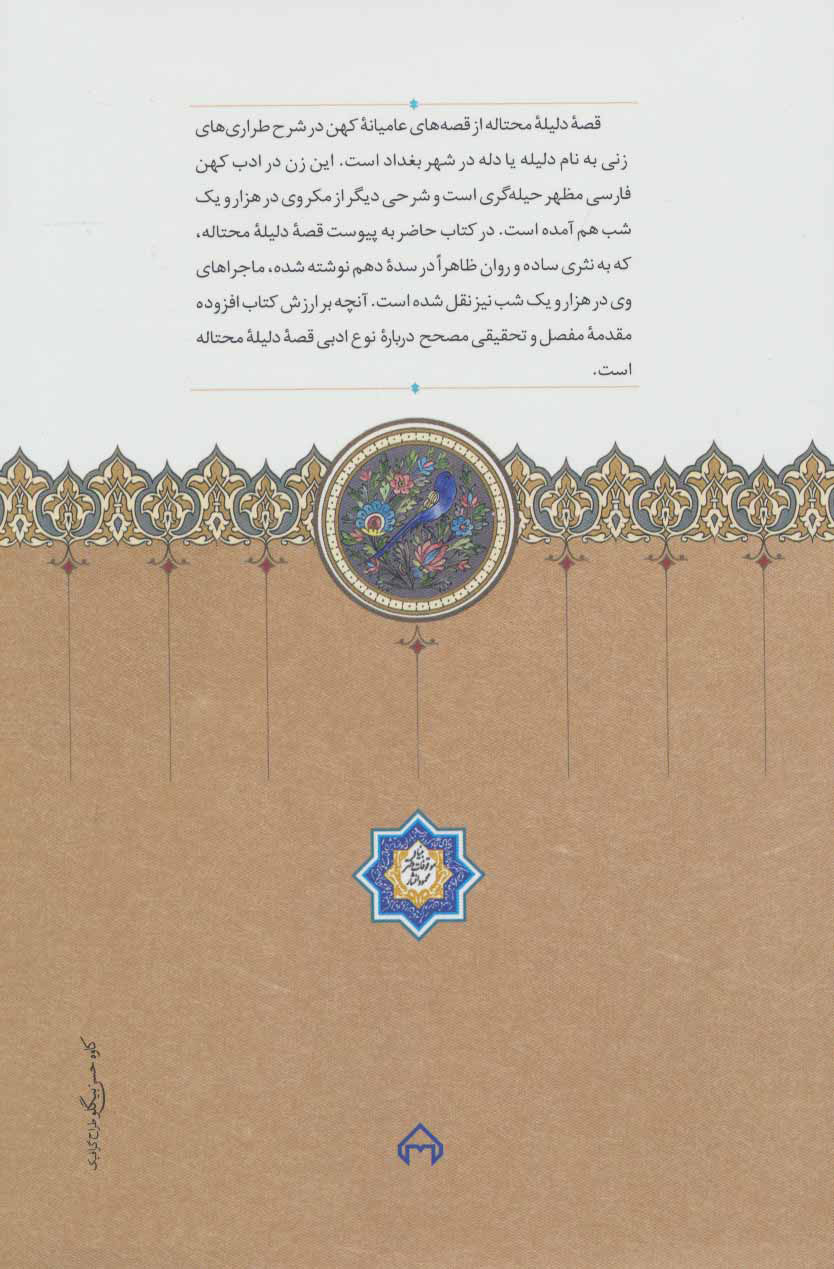 قصهٔ دلیلهٔ محتاله از قصه‌های عامیانهٔ کهن در شرح طراری‌های
زنی به نام دلیله یا دله در شهر بغداد است. این زن در ادب کهن
فارسی مظهر حیله‌گری است و شرحی دیگر از مکر وی در هزار و یک
شب هم آمده است. در کتاب حاضر به پیوست قصهٔ دلیلهٔ محتاله،
که به نثری ساده و روان ظاهراً در سدهٔ دهم نوشته شده، ماجراهای
وی در هزار و یک شب نیز نقل شده است. آنچه بر ارزش کتاب افزوده
مقدمهٔ مفصل و تحقیقی مصحح دربارهٔ نوع ادبی قصهٔ دلیلهٔ محتاله
است.
بنیاد
موقوفات دکتر
محمود افشار
کاوه حسن‌بیگلو طراح گرافیک